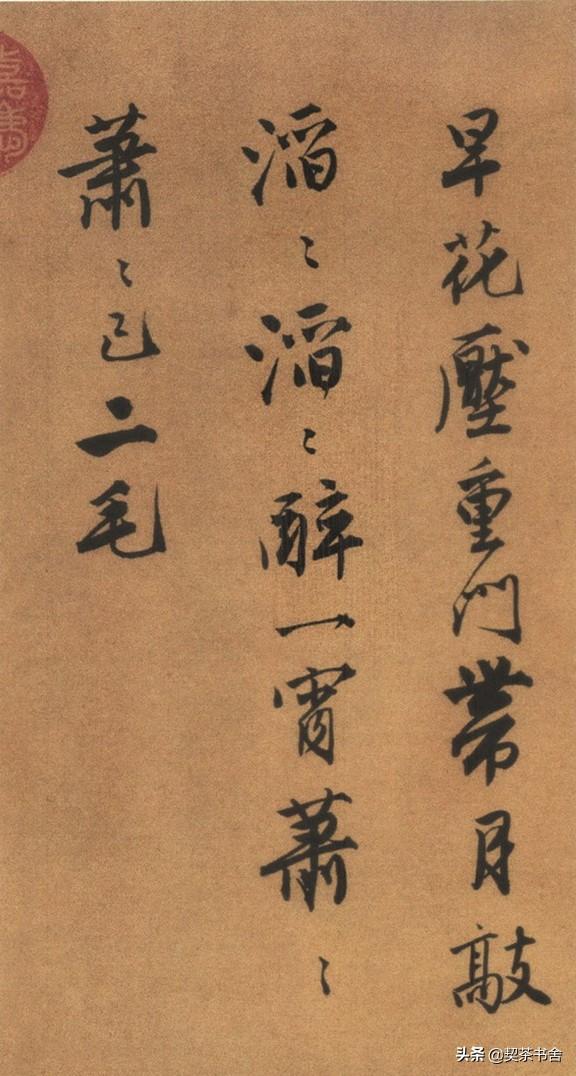 早花壓重門帶月敲
滔〻滔〻醉一宵蕭〻
蕭〻已二毛
头条 @契茶书舍